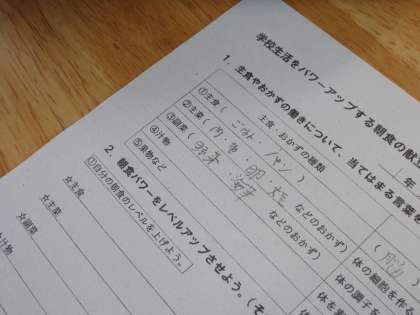 学校生活をパワーアップする朝食の献
年
1．主食やおかずの働きについて、当てはまる言葉を
主食・おかずの種類
①主食（ごはん・パン）
②主菜（肉・魚・卵・大豆などのおかず）
③副菜（野菜・海草などのおかず）
④汁物
⑤果物など
体の細胞を作る
体の調子を
体を
2．朝食パワーをレベルアップさせよう。（そ
①自分の朝食のレベルを上げよう。
☆主食
☆主菜
☆副菜
☆汁物